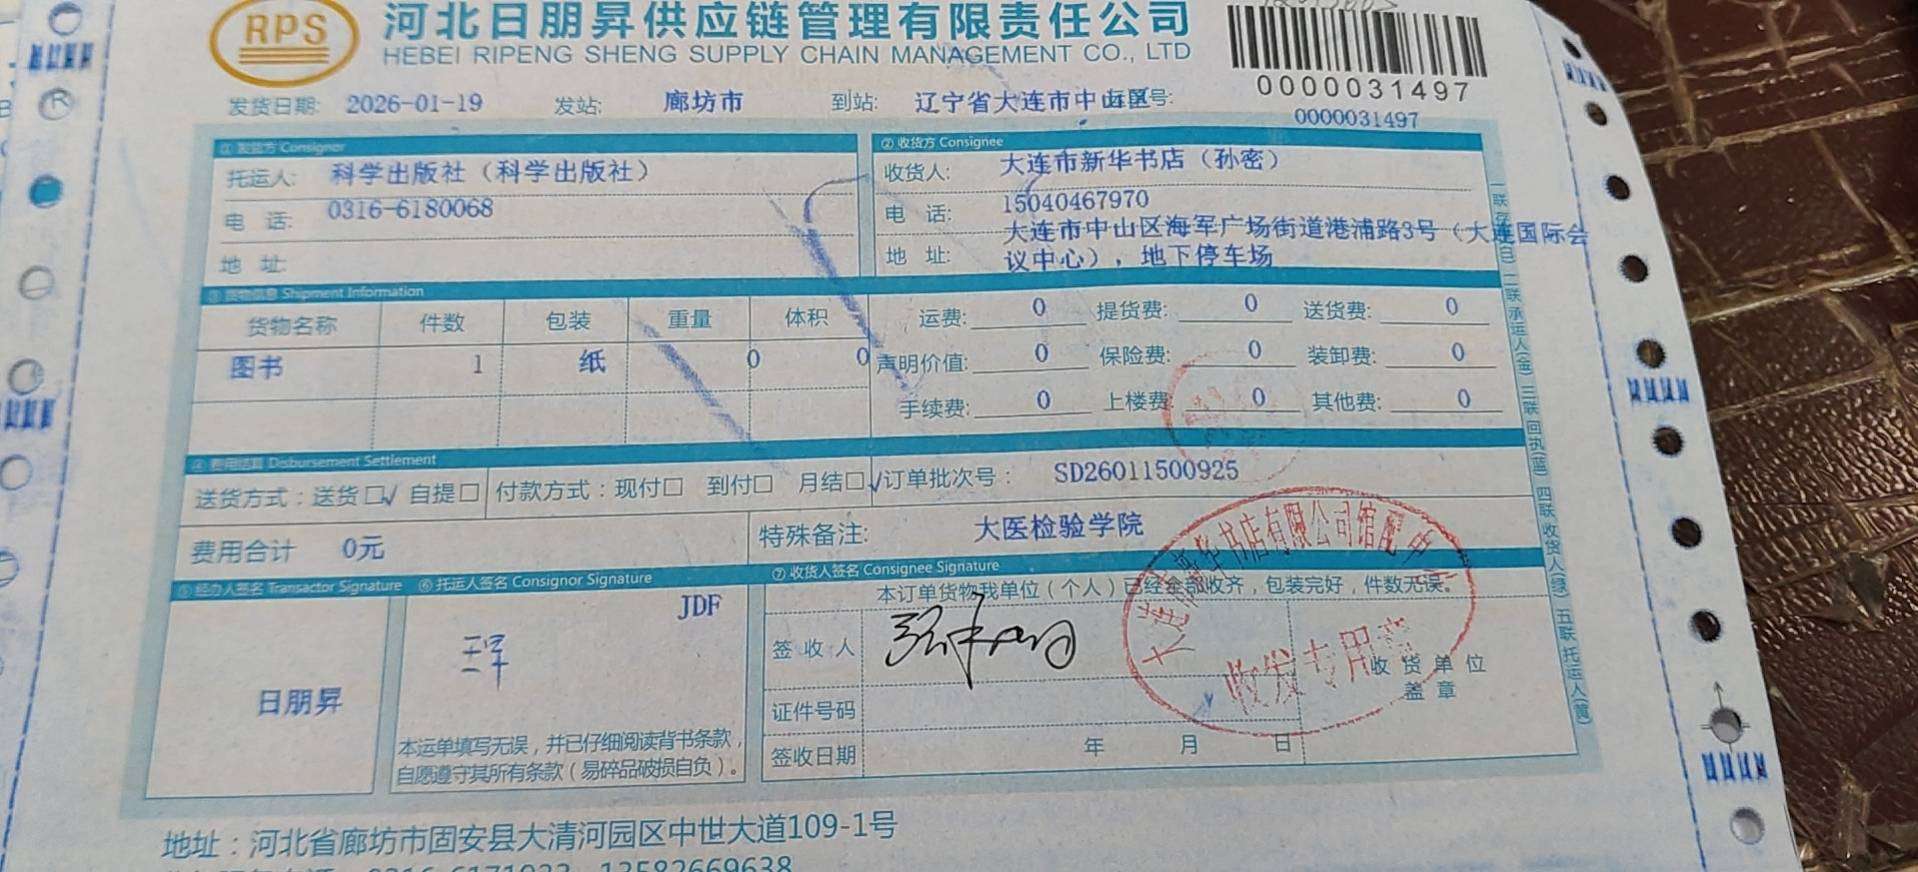 RPS
河北日朋昇供应链管理有限责任公司
HEBEI RIPENG SHENG SUPPLY CHAIN MANAGEMENT CO., LTD
0000031497
发货日期: 2026-01-19 发站: 廊坊市 到站: 辽宁省大连市中山区 号:
0000031497
① 发货方 Consignor
② 收货方 Consignee
托运人: 科学出版社（科学出版社）
收货人: 大连市新华书店（孙密）
电 话: 0316-6180068
电 话: 15040467970
地 址:
地 址: 大连市中山区海军广场街道港浦路3号（大连国际会
议中心），地下停车场
③ 货物信息 Shipment Information
货物名称 件数 包装 重量 体积
图书 1 纸 0 0
运费: 0 提货费: 0 送货费: 0
声明价值: 0 保险费: 0 装卸费: 0
手续费: 0 上楼费: 0 其他费: 0
④ 费用结算 Disbursement Settlement
送货方式：送货□√ 自提□ 付款方式：现付□ 到付□ 月结□√ 订单批次号： SD26011500925
费用合计 0元
特殊备注: 大医检验学院
⑤ 经办人签名 Transactor Signature
日朋昇
⑥ 托运人签名 Consignor Signature
JDF
本运单填写无误，并已仔细阅读背书条款，
自愿遵守其所有条款（易碎品破损自负）。
⑦ 收货人签名 Consignee Signature
本订单货物我单位（个人）已经全部收齐，包装完好，件数无误。
签 收 人
证件号码
签收日期 年 月 日
收 货 单 位
盖 章
收发专用章
二联承运人(金) 三联回执(蓝) 四联收货人(绿) 五联托运人(黄)
地址：河北省廊坊市固安县大清河园区中世大道109-1号